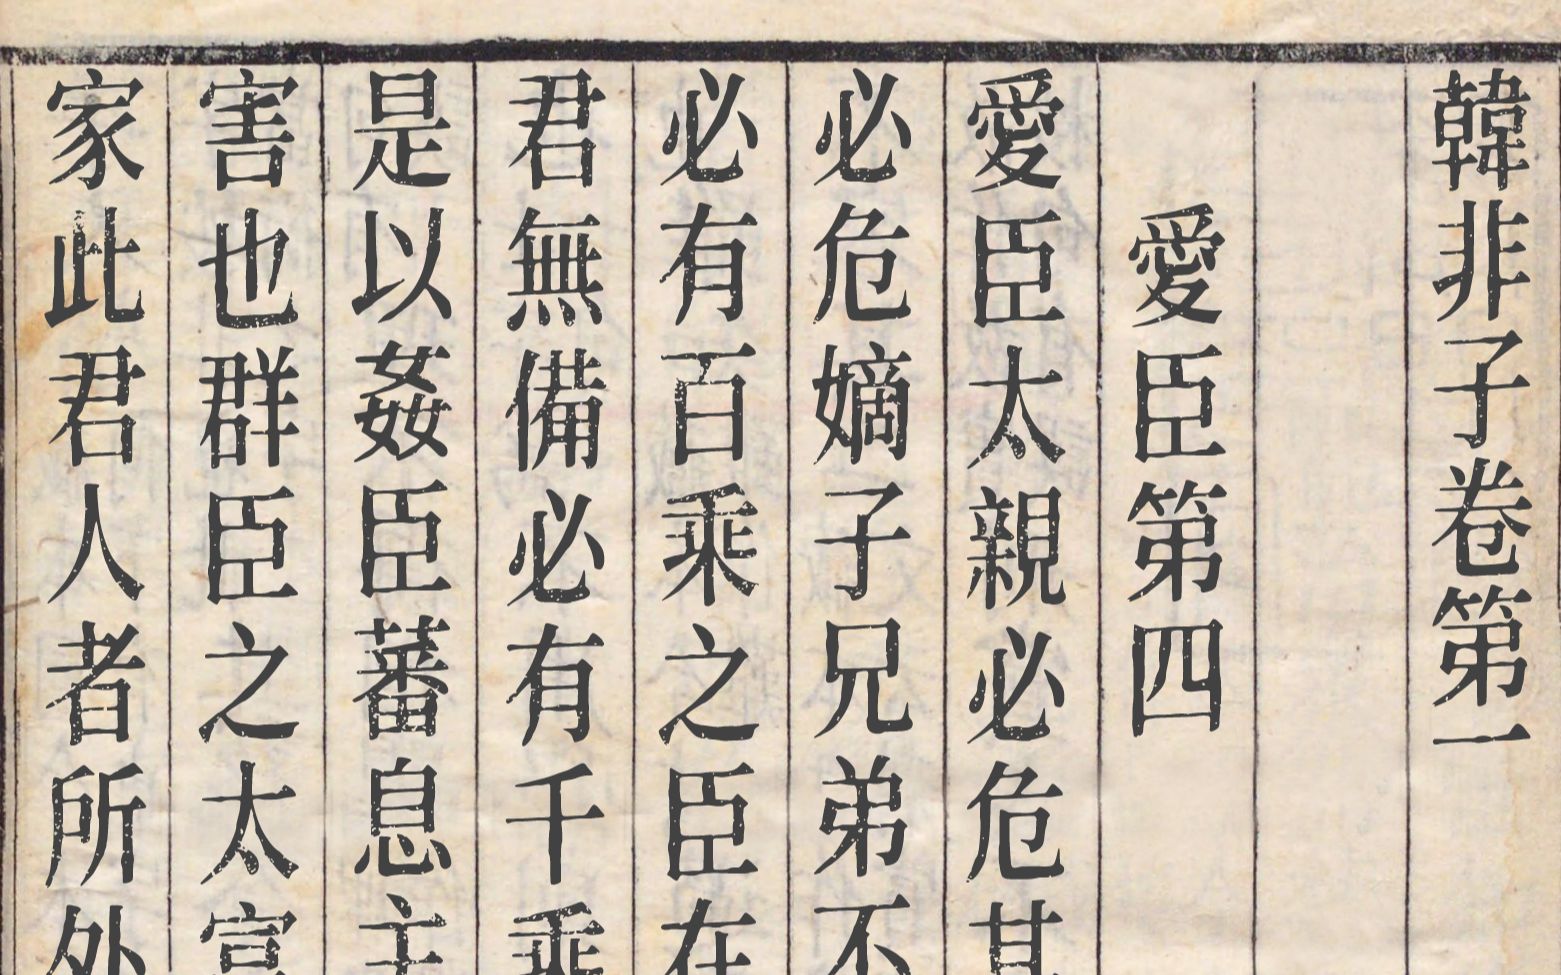 韓非子卷第一
愛臣第四
愛臣太親必危其
必危嫡子兄弟不
必有百乘之臣在
君無備必有千乘
是以姦臣蕃息主
害也群臣之太富
家此君人者所外